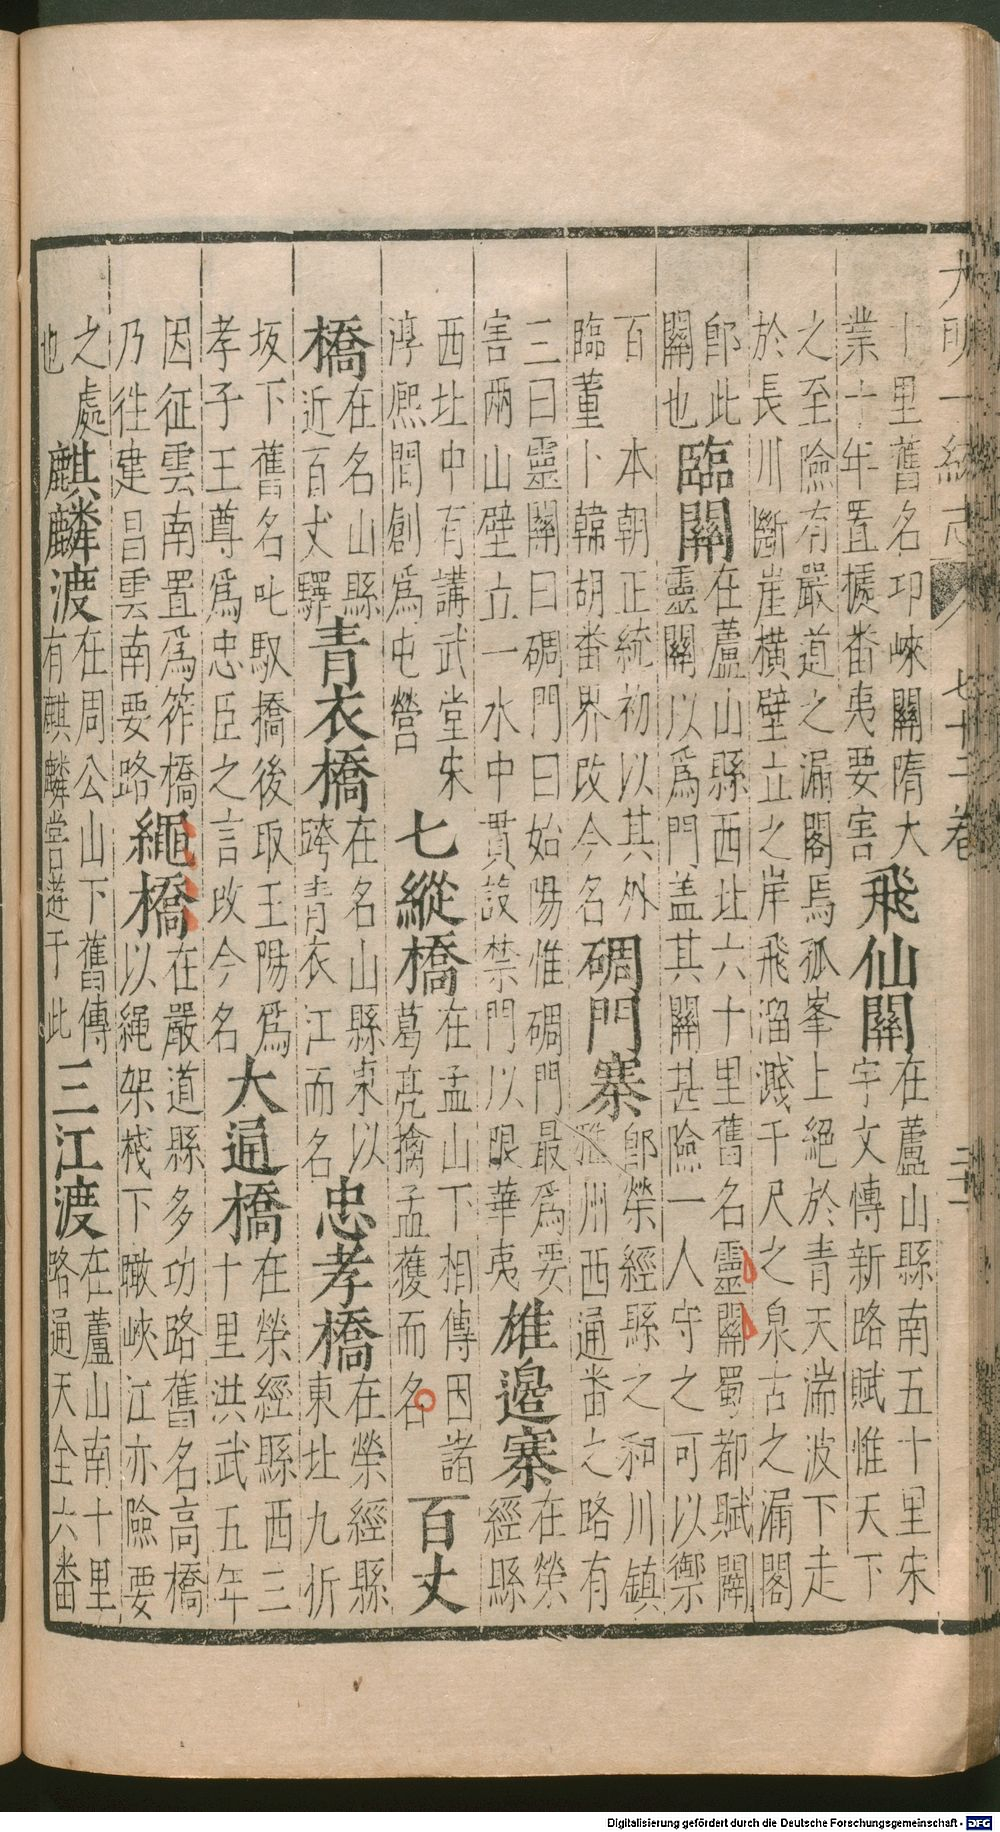 大明一統志 七十二卷
十里舊名卭崍關隋大
業十年置據畨夷要害
飛仙關
在蘆山縣南五十里宋
宇文愽新路賦惟天下
之至險有嚴道之漏閣焉孤峯上絕於青天湍波下走
於長川斷崖橫壁立之岸飛溜濺千尺之泉古之漏閣
即此
關也
臨關
在蘆山縣西北六十里舊名靈關蜀都賦闢
靈關以爲門盖其關甚險一人守之可以禦
百 本朝正統初以其外
臨董卜韓胡畨界改今名
碉門寨
即榮經縣之和川鎮
雅州西通畨之路有
三曰靈關曰碉門曰始陽惟碉門最爲要
害兩山壁立一水中貫設禁門以限華夷
雄邊寨
在榮
經縣
西北中有講武堂宋
淳熈間創爲屯營
七縱橋
在孟山下相傳因諸
葛亮擒孟獲而名
百丈
橋
在名山縣
近百丈驛
青衣橋
在名山縣東以
跨青衣江而名
忠孝橋
在榮經縣
東北九折
坂下舊名叱馭橋後取王陽爲
孝子王尊爲忠臣之言改今名
大通橋
在榮經縣西三
十里洪武五年
因征雲南置爲筰橋
乃徃建昌雲南要路
繩橋
在嚴道縣多功路舊名高橋
以繩架棧下瞰峽江亦險要
之處
也
麒麟渡
在周公山下舊傳
有麒麟嘗遊于此
三江渡
在蘆山南十里
路通天全六畨
Digitalisierung gefördert durch die Deutsche Forschungsgemeinschaft - DFG